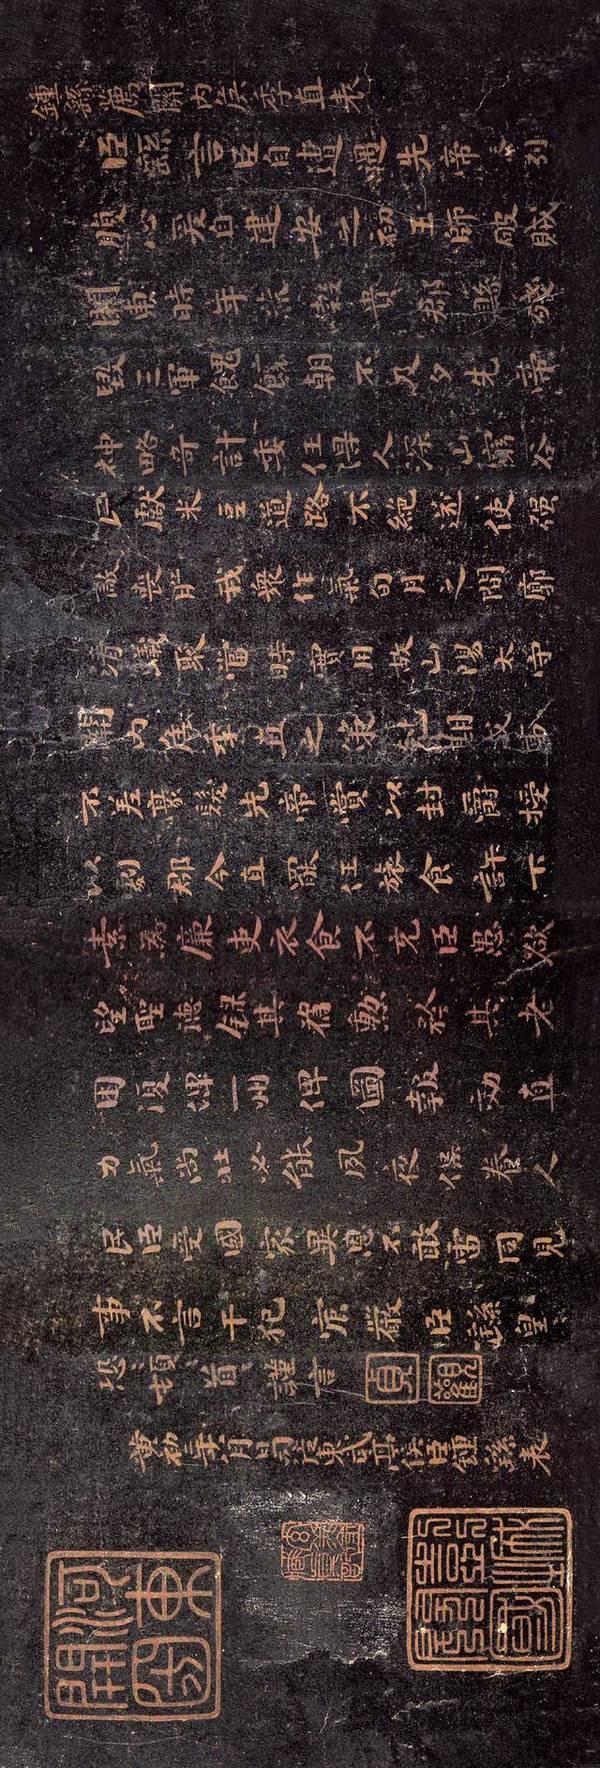 鍾繇薦關內侯季直表
臣繇言臣自遭遇先帝忝列
腹心爰自建安之初王師破賊
關東時年荒穀貴郡縣殘
毀三軍餽饟朝不及夕先帝
神略奇計委任得人深山窮谷
民獻米豆道路不絕遂使强
敵喪膽我眾作氣旬月之間廓
清蟻聚當時實用故山陽太守
關內侯季直之策剋期成事
不差豪髮先帝賞以封爵授
以劇郡今直罷任旅食許下
素為廉吏衣食不充臣愚欲
望聖德錄其舊勳矜其老
困復俾一州俾圖報效直
力氣尚壯必能夙夜保養人
民臣受國家異恩不敢雷同見
事不言干犯宸嚴臣繇皇
恐頓首謹言
貞觀
黃初二年八月日司徒東武亭侯臣鍾繇表